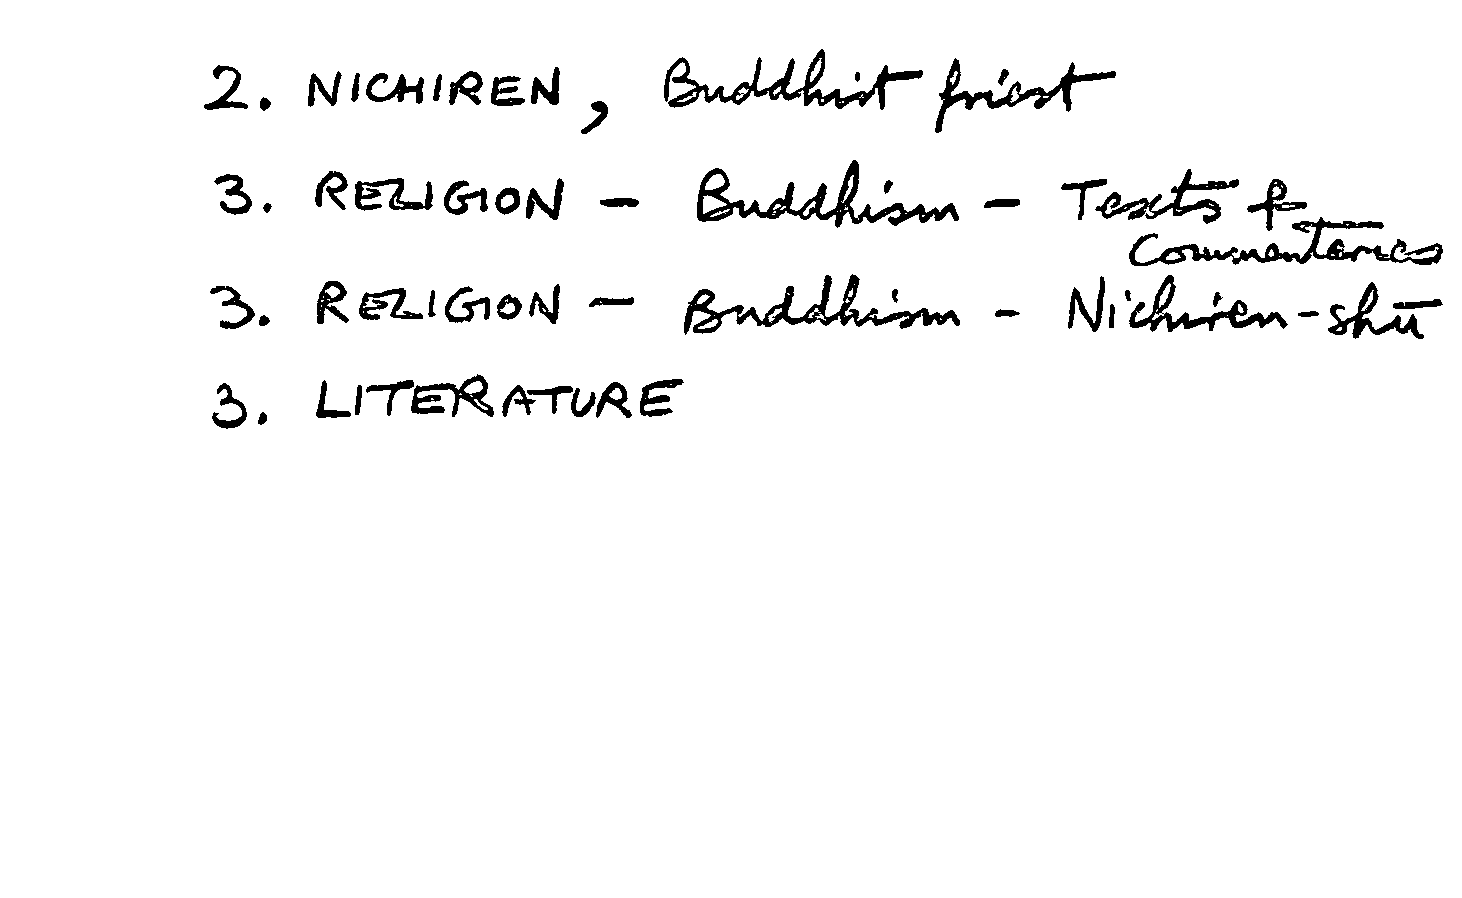 2. NICHIREN, Buddhist priest
3. RELIGION - Buddhism - Texts &
Commentaries
3. RELIGION - Buddhism - Nichiren-shū
3. LITERATURE